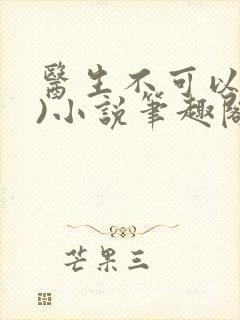 醫生不可以
)小說筆趣閣
芒果三